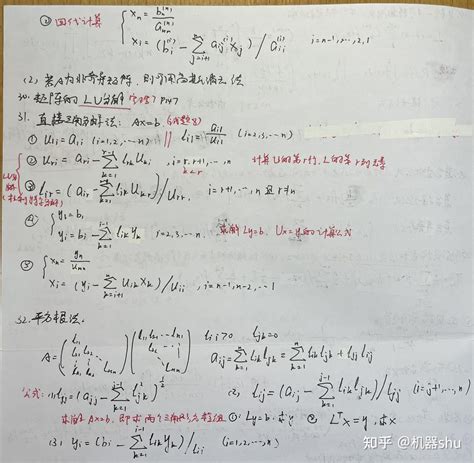 ② 回代计算 { x_n = b_n^{(n)} / a_{nn}^{(n)}
x_i = (b_i^{(i)} - Σ_{j=i+1}^{n} a_{ij}^{(i)} x_j) / a_{ii}^{(i)} i=n-1,…,2,1
(2) 若A为非奇异矩阵, 则可用高斯消去法
30. 矩阵的LU分解 P147
31. 直接三角分解法: Ax=b
① u_{1i} = a_{1i} (i=1,2,…n) || l_{i1} = a_{i1}/u_{11} (i=2,3,…n)
② u_{ri} = a_{ri} - Σ_{k=1}^{r-1} l_{rk} u_{ki}, i=r,r+1,…,n 计算U的第r行, L的第r列元素
③ l_{ir} = (a_{ir} - Σ_{k=1}^{r-1} l_{ik} u_{kr}) / u_{rr}, i=r+1,…,n 且 r≠n
LU分解
④ { y_1 = b_1
y_i = b_i - Σ_{k=1}^{i-1} l_{ik} y_k, i=2,3,…n. 求解 Ly=b, Ux=y的计算公式
⑤ { x_n = y_n / u_{nn}
x_i = (y_i - Σ_{k=i+1}^{n} u_{ik} x_k) / u_{ii}, i=n-1,n-2,…1
32. 平方根法.
A = (l_{11} l_{21} l_{22} … l_{n1} l_{n2} … l_{nn}) (l_{11} l_{21} … l_{n1} l_{22} … l_{nn}) l_{ii}>0 l_{jk}=0
a_{ij} = Σ_{k=1}^{n} l_{ik} l_{jk} = Σ_{k=1}^{j-1} l_{ik} l_{jk} + l_{jj} l_{ij}
公式: (1) l_{jj} = (a_{jj} - Σ_{k=1}^{j-1} l_{jk}^2)^{1/2} (2) l_{ij} = (a_{ij} - Σ_{k=1}^{j-1} l_{ik} l_{jk}) / l_{jj} (i=j+1,…n)
求解Ax=b, 即求两个三角形方程组 ①: Ly=b, 求y ② L^T x=y, 求x
(3) y_i = (b_i - Σ_{k=1}^{i-1} l_{ik} y_k) / l_{ii} (i=1,2,…n)
知乎 @机器shu